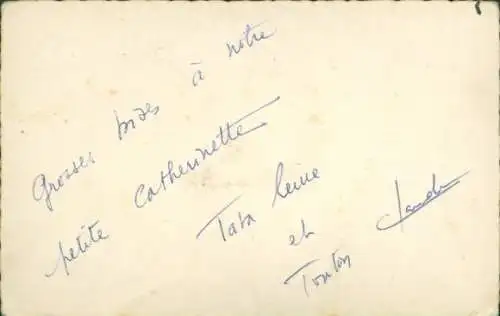 Grosses bises à notre
petite Catherinette
Tata
et
Tonton